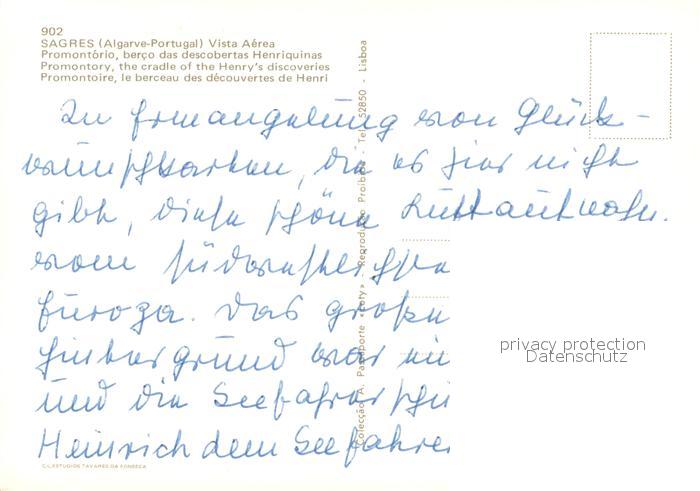 902
SAGRES (Algarve-Portugal) Vista Aérea
Promontório, berço das descobertas Henriquinas
Promontory, the cradle of the Henry's discoveries
Promontoire, le berceau des découvertes de Henri
In Ermangelung von Glück-
wunschkarten, die es hier nicht
gibt, diese schöne Luftaufnahm.
vom südwestlichsten
Europa. Das große
hinter grund war
und die Seefahrerschu
Heinrich dem Seefahrer
Colecção A. Passaporte «Loty» - Reprodução Proibida - Tel. 52850 - Lisboa
privacy protection
Datenschutz
C.L. ESTUDIOS TAVARES DA FONSECA